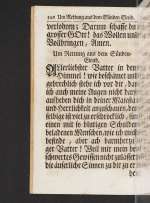 240 Um Rettung auß dem Sünden-Stand.
verlohren; Darum schaffe du
grosser GOtt! das Wollen und
Vollbringen, Amen.
Um Rettung aus dem Sünden-
Stand.
Allerliebster Vatter in dem
Himmel! wie beschämet und
gebrechlich stehe ich vor dir, daß
ich auch meine Augen nicht darff
aufheben dich in deiner Majestät
und Herrlichkeit anzuschauen, der
selbige ist viel zu erschröcklich,
einen mit so blutigen Schulden
beladenen Menschen, wie ich mich
befinde, aber ach barmhertziger
Vatter! Weil mir mein be-
schwertes Gewissen nicht zulässet
die äusserliche Sünden zu dir zu er-